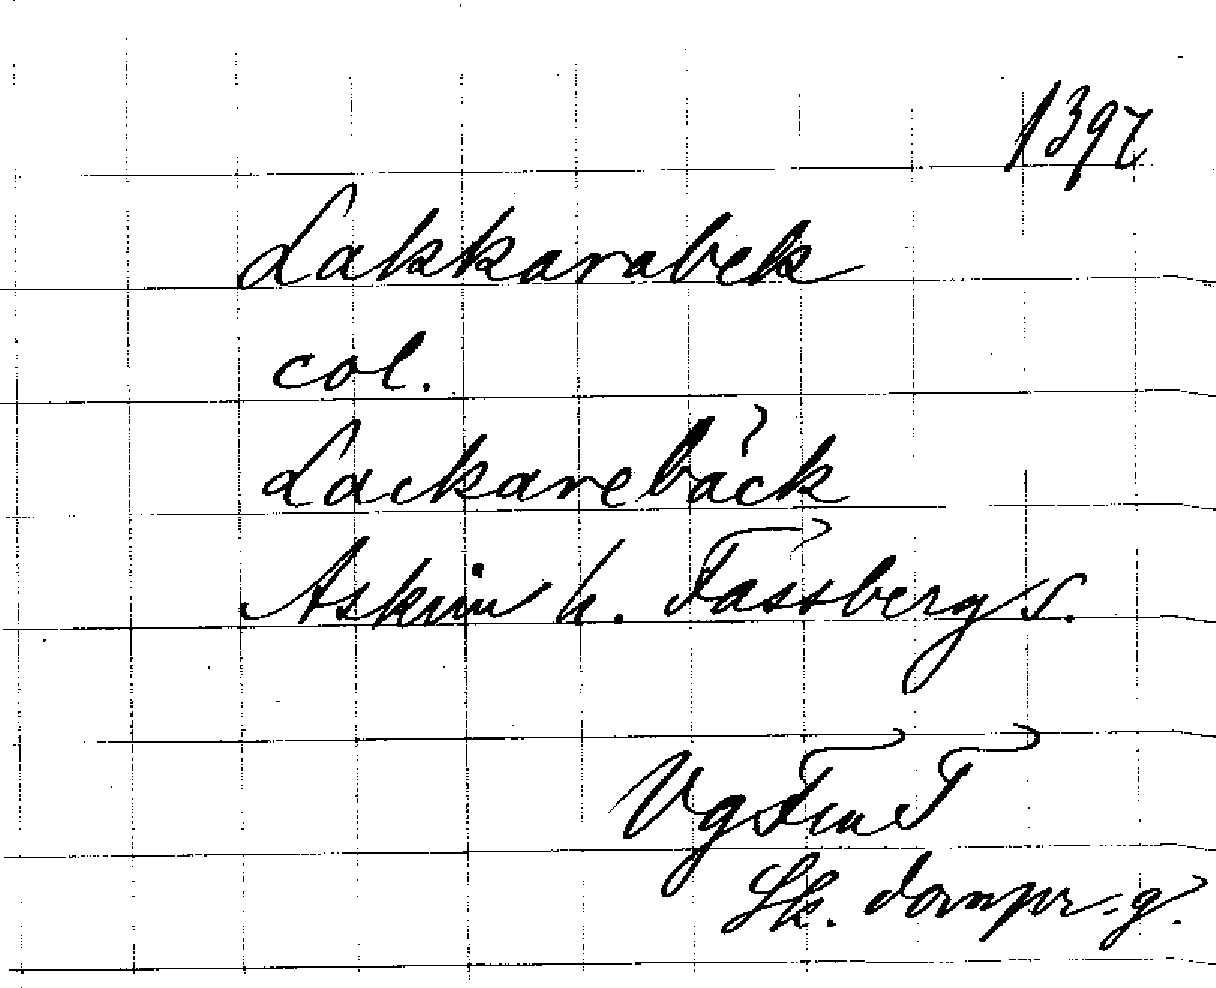 1397
Lakkarabek
col.
Lackarebäck
Askim h. Fässbergs s.
Vg Fm T
Sk. domspr.g.